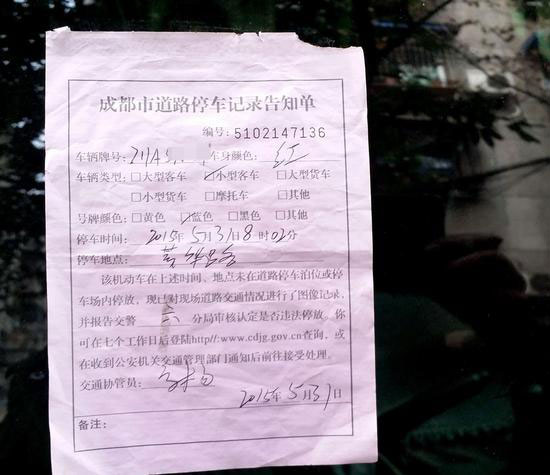 成都市道路停车记录告知单
编号:5102147136
车辆牌号:川A 车身颜色:红
车辆类型:□大型客车 ☑小型客车 □大型货车
□小型货车 □摩托车 □其他
号牌颜色:□黄色 ☑蓝色 □黑色 □其他
停车时间:2015年5月31日8时02分
停车地点:
该机动车在上述时间、地点未在道路停车泊位或停
车场内停放,现已对现场道路交通情况进行了图像记录,
并报告交警 六 分局审核认定是否违法停放。你
可在七个工作日后登陆http//:www.cdjg.gov.cn查询,或
在收到公安机关交通管理部门通知后前往接受处理。
交通协管员:
2015年5月31日
备注: